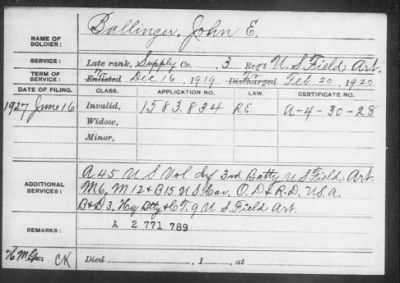 NAME OF SOLDIER: Ballinger, John E.
SERVICE: Late rank, Supply Co., 3 Reg't U.S. Field Art.
TERM OF SERVICE: Enlisted Dec 16, 1919 Discharged Feb 20, 1920
DATE OF FILING. CLASS. APPLICATION NO. LAW. CERTIFICATE NO.
1927 June 16 Invalid, 1583.834 RE A-4-30-28
Widow,
Minor,
ADDITIONAL SERVICES: A 45 U S Vol Inf 3rd Batty U S Field Art.
M6, M12 & B15 U S Cav. O.D & R.D. U.S.A.
B & D3, Hq Btty & C F. 9 U S Field Art.
REMARKS: A 2 771 789
CK Died , 1 , at